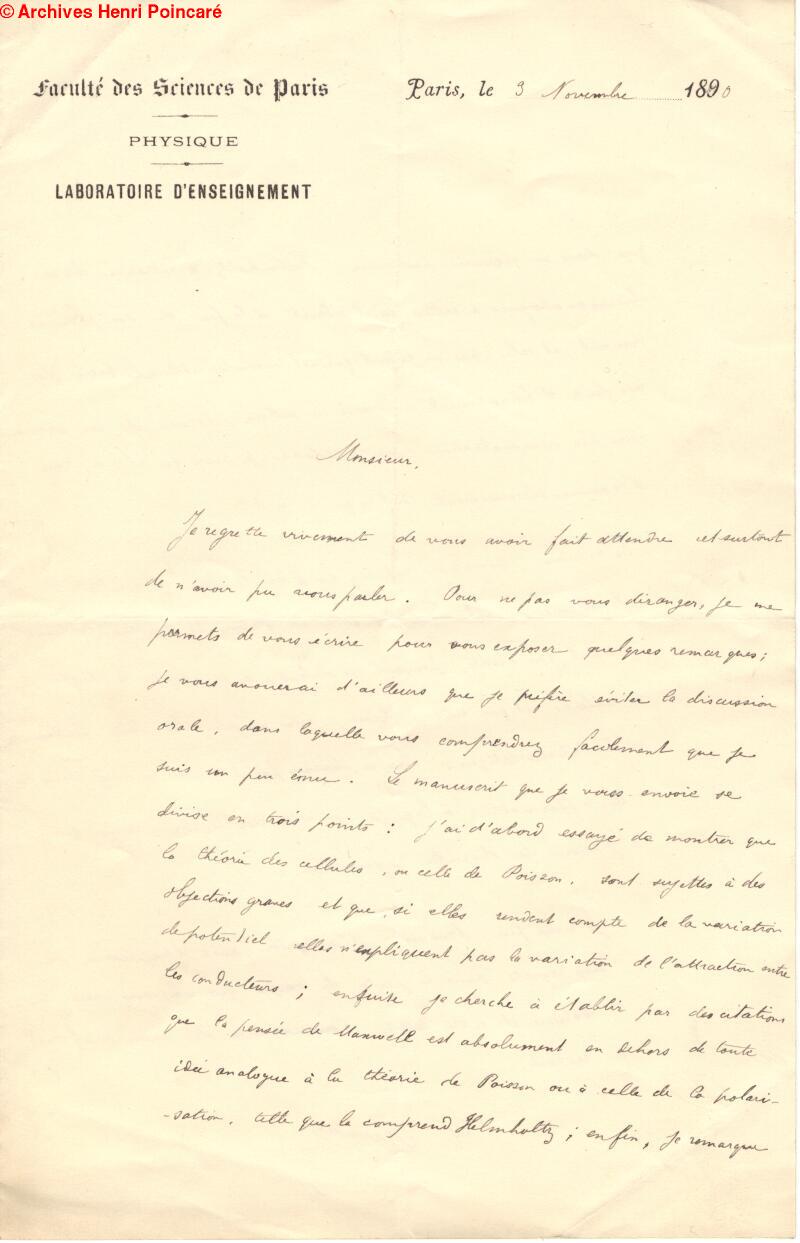 © Archives Henri Poincaré
Faculté des Sciences de Paris
Paris, le 3 Novembre 1890
PHYSIQUE
LABORATOIRE D'ENSEIGNEMENT
Monsieur,
Je regrette vivement de vous avoir fait attendre et surtout
de n'avoir pu vous parler. Pour ne pas vous déranger, je me
permets de vous écrire pour vous exposer quelques remarques ;
je vous avouerai d'ailleurs que je préfère éviter la discussion
orale, dans laquelle vous comprendrez facilement que je
suis un peu ému. Le manuscrit que je vous envoie se
divise en trois points : j'ai d'abord essayé de montrer que
la théorie des cellules, ou celle de Poisson, sont sujettes à des
objections graves et que, si elles rendent compte de la variation
de potentiel elles n'expliquent pas la variation de l'attraction entre
les conducteurs ; ensuite je cherche à établir par des citations
que la pensée de Maxwell est absolument en dehors de toute
idée analogue à la théorie de Poisson ou à celle de la polari-
-sation, telle que la comprend Helmholtz ; enfin, je remarque